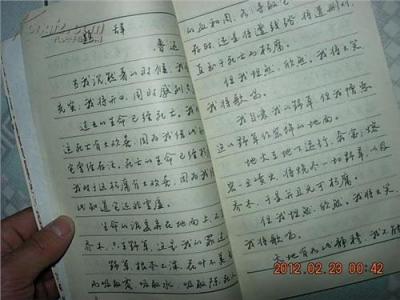 题辞
鲁迅
当我沉默着的时候,我
充实;我将开口,同时感到
过去的生命已经死亡。我
这死亡有大欢喜,因为我借此
它曾经存活。死亡的生命已经
我对于这朽腐有大欢喜,因为我
此知道它还非空虚。
生命的泥委弃在地面上,不
乔木,只生野草,这是我的罪过
野草,根本不深,花叶不美,
而吸取露,吸取水,吸取陈死
的血和肉,各各夺取它
存时,还是将遭践踏,将遭删刈,
直至于死亡而朽腐。
但我坦然,欣然。我将大笑,
我将歌唱。
我自爱我的野草,但我憎恶
这以野草作装饰的地面。
地火在地下运行,奔突;熔
岩一旦喷出,将烧尽一切野草,以及
乔木,于是并且无可朽腐。
但我坦然,欣然。我将大笑,
我将歌唱。
天地有如此静穆,我不能
2012.02.23 00:42